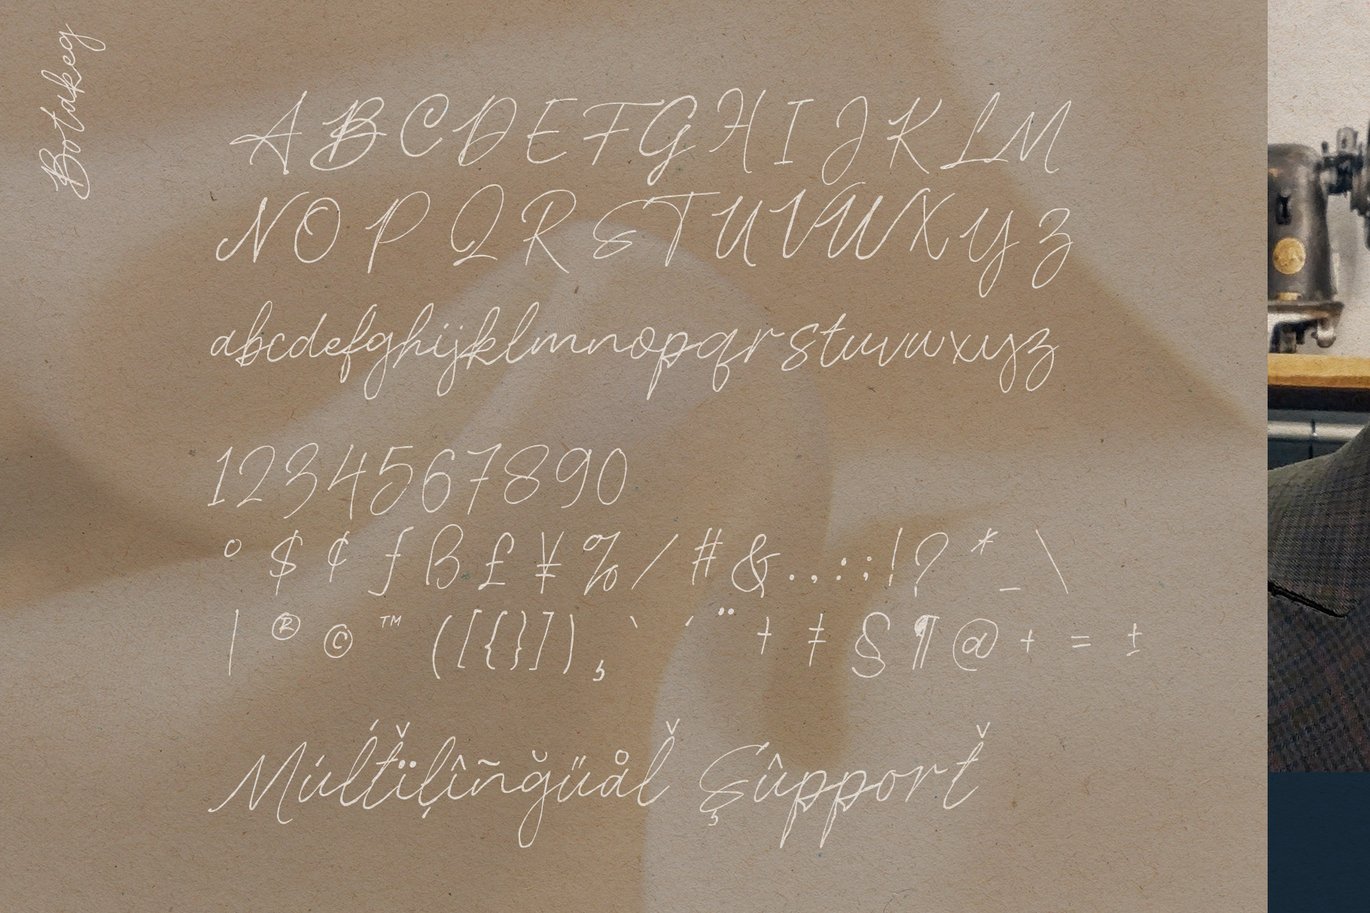 Botakeg
A B C D E F G H I J K L M
N O P Q R S T U V W X Y Z
abcdefghijklmnopqrstuvwxyz
1234567890
° $ ¢ ƒ ß £ ¥ % / # & . , : ; ! ? * _ \
| ® © ™ ( [ { } ] ) ¸ ` ´ ¨ † ‡ § ¶ @ + = ±
Múĺťïļîñğüåľ Şûpporť